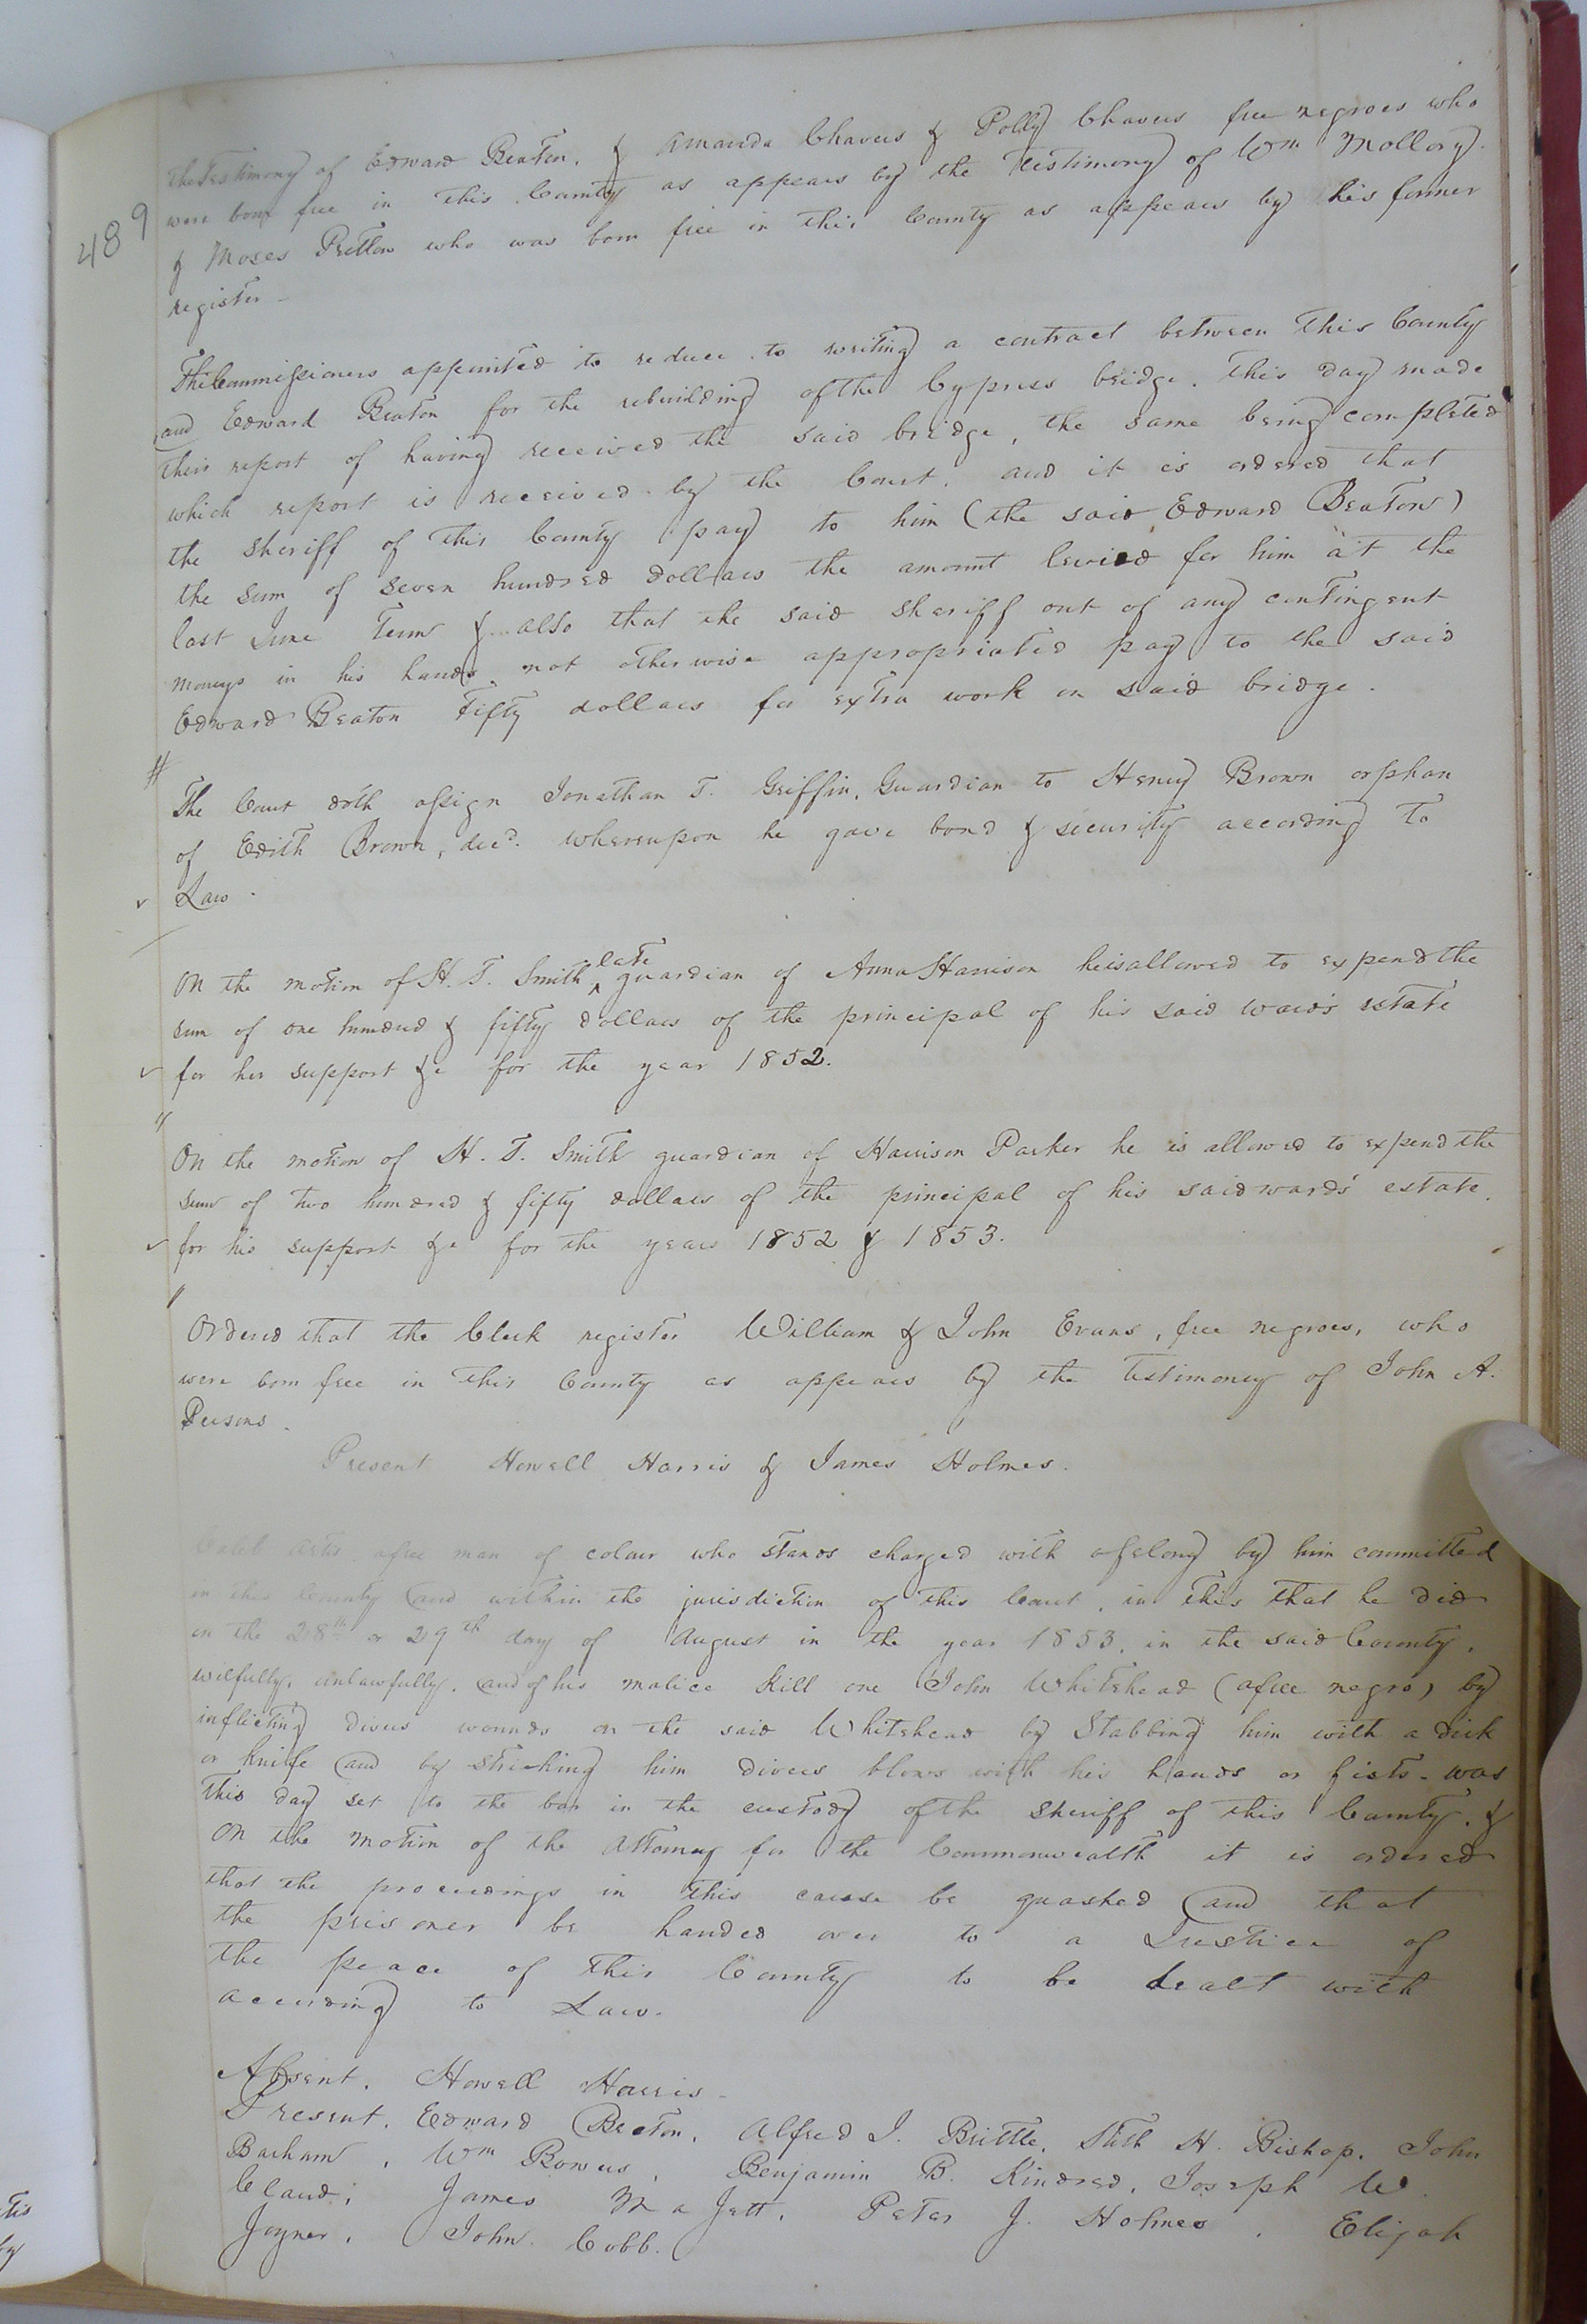 489
the testimony of Edward Beaton, & Amanda Chavers & Polly Chavers free negroes who
were born free in this County as appears by the testimony of Wm Mallory.
& Moses Pretlow who was born free in this County as appears by his former
register -
The Commissioners appointed to reduce to writing a contract between this County
and Edward Beaton for the rebuilding of the Cypress bridge, this day made
their report of having received the said bridge, the same being completed
which report is received by the Court, and it is ordered that
the sheriff of this County pay to him (the said Edward Beaton)
the sum of seven hundred dollars the amount levied for him at the
last June Term & also that the said sheriff out of any contingent
moneys in his hands not otherwise appropriated pay to the said
Edward Beaton Fifty dollars for extra work on said bridge.
The Court doth assign Jonathan T. Griffin, Guardian to Henry Brown orphan
of Edith Brown, decd. whereupon he gave bond & security according to
Law.
On the motion of H. T. Smith late guardian of Anna Harrison he is allowed to expend the
sum of one hundred & fifty dollars of the principal of his said wards estate
for her support &c for the year 1852.
On the motion of H. T. Smith guardian of Harrison Parker he is allowed to expend the
sum of two hundred & fifty dollars of the principal of his said wards' estate
for his support &c for the years 1852 & 1853.
Ordered that the Clerk register William & John Evans, free negroes, who
were born free in this County as appears by the testimony of John A.
Persons.
Present Howell Harris & James Holmes.
Caleb Artis a free man of colour who stands charged with a felony by him committed
in this County and within the jurisdiction of this Court, in this that he did
on the 28th or 29th day of August in the year 1853, in the said County,
wilfully, unlawfully, and of his malice kill one John Whitehead (a free negro) by
inflicting divers wounds on the said Whitehead by Stabbing him with a dirk
or knife and by striking him divers blows with his hands or fists - was
this day set to the bar in the custody of the sheriff of this County, &
on the motion of the Attorney for the Commonwealth it is ordered
that the proceedings in this cause be quashed and that
the prisoner be handed over to a Justice of
the peace of this County to be dealt with
according to Law.
Absent. Howell Harris -
Present. Edward Beaton, Alfred J. Brittle, Stith H. Bishop, John
Barham, Wm Bowers, Benjamin B. Kindred, Joseph W.
Claud, James Majett, Peter J. Holmes, Elijah
Joyner, John Cobb.